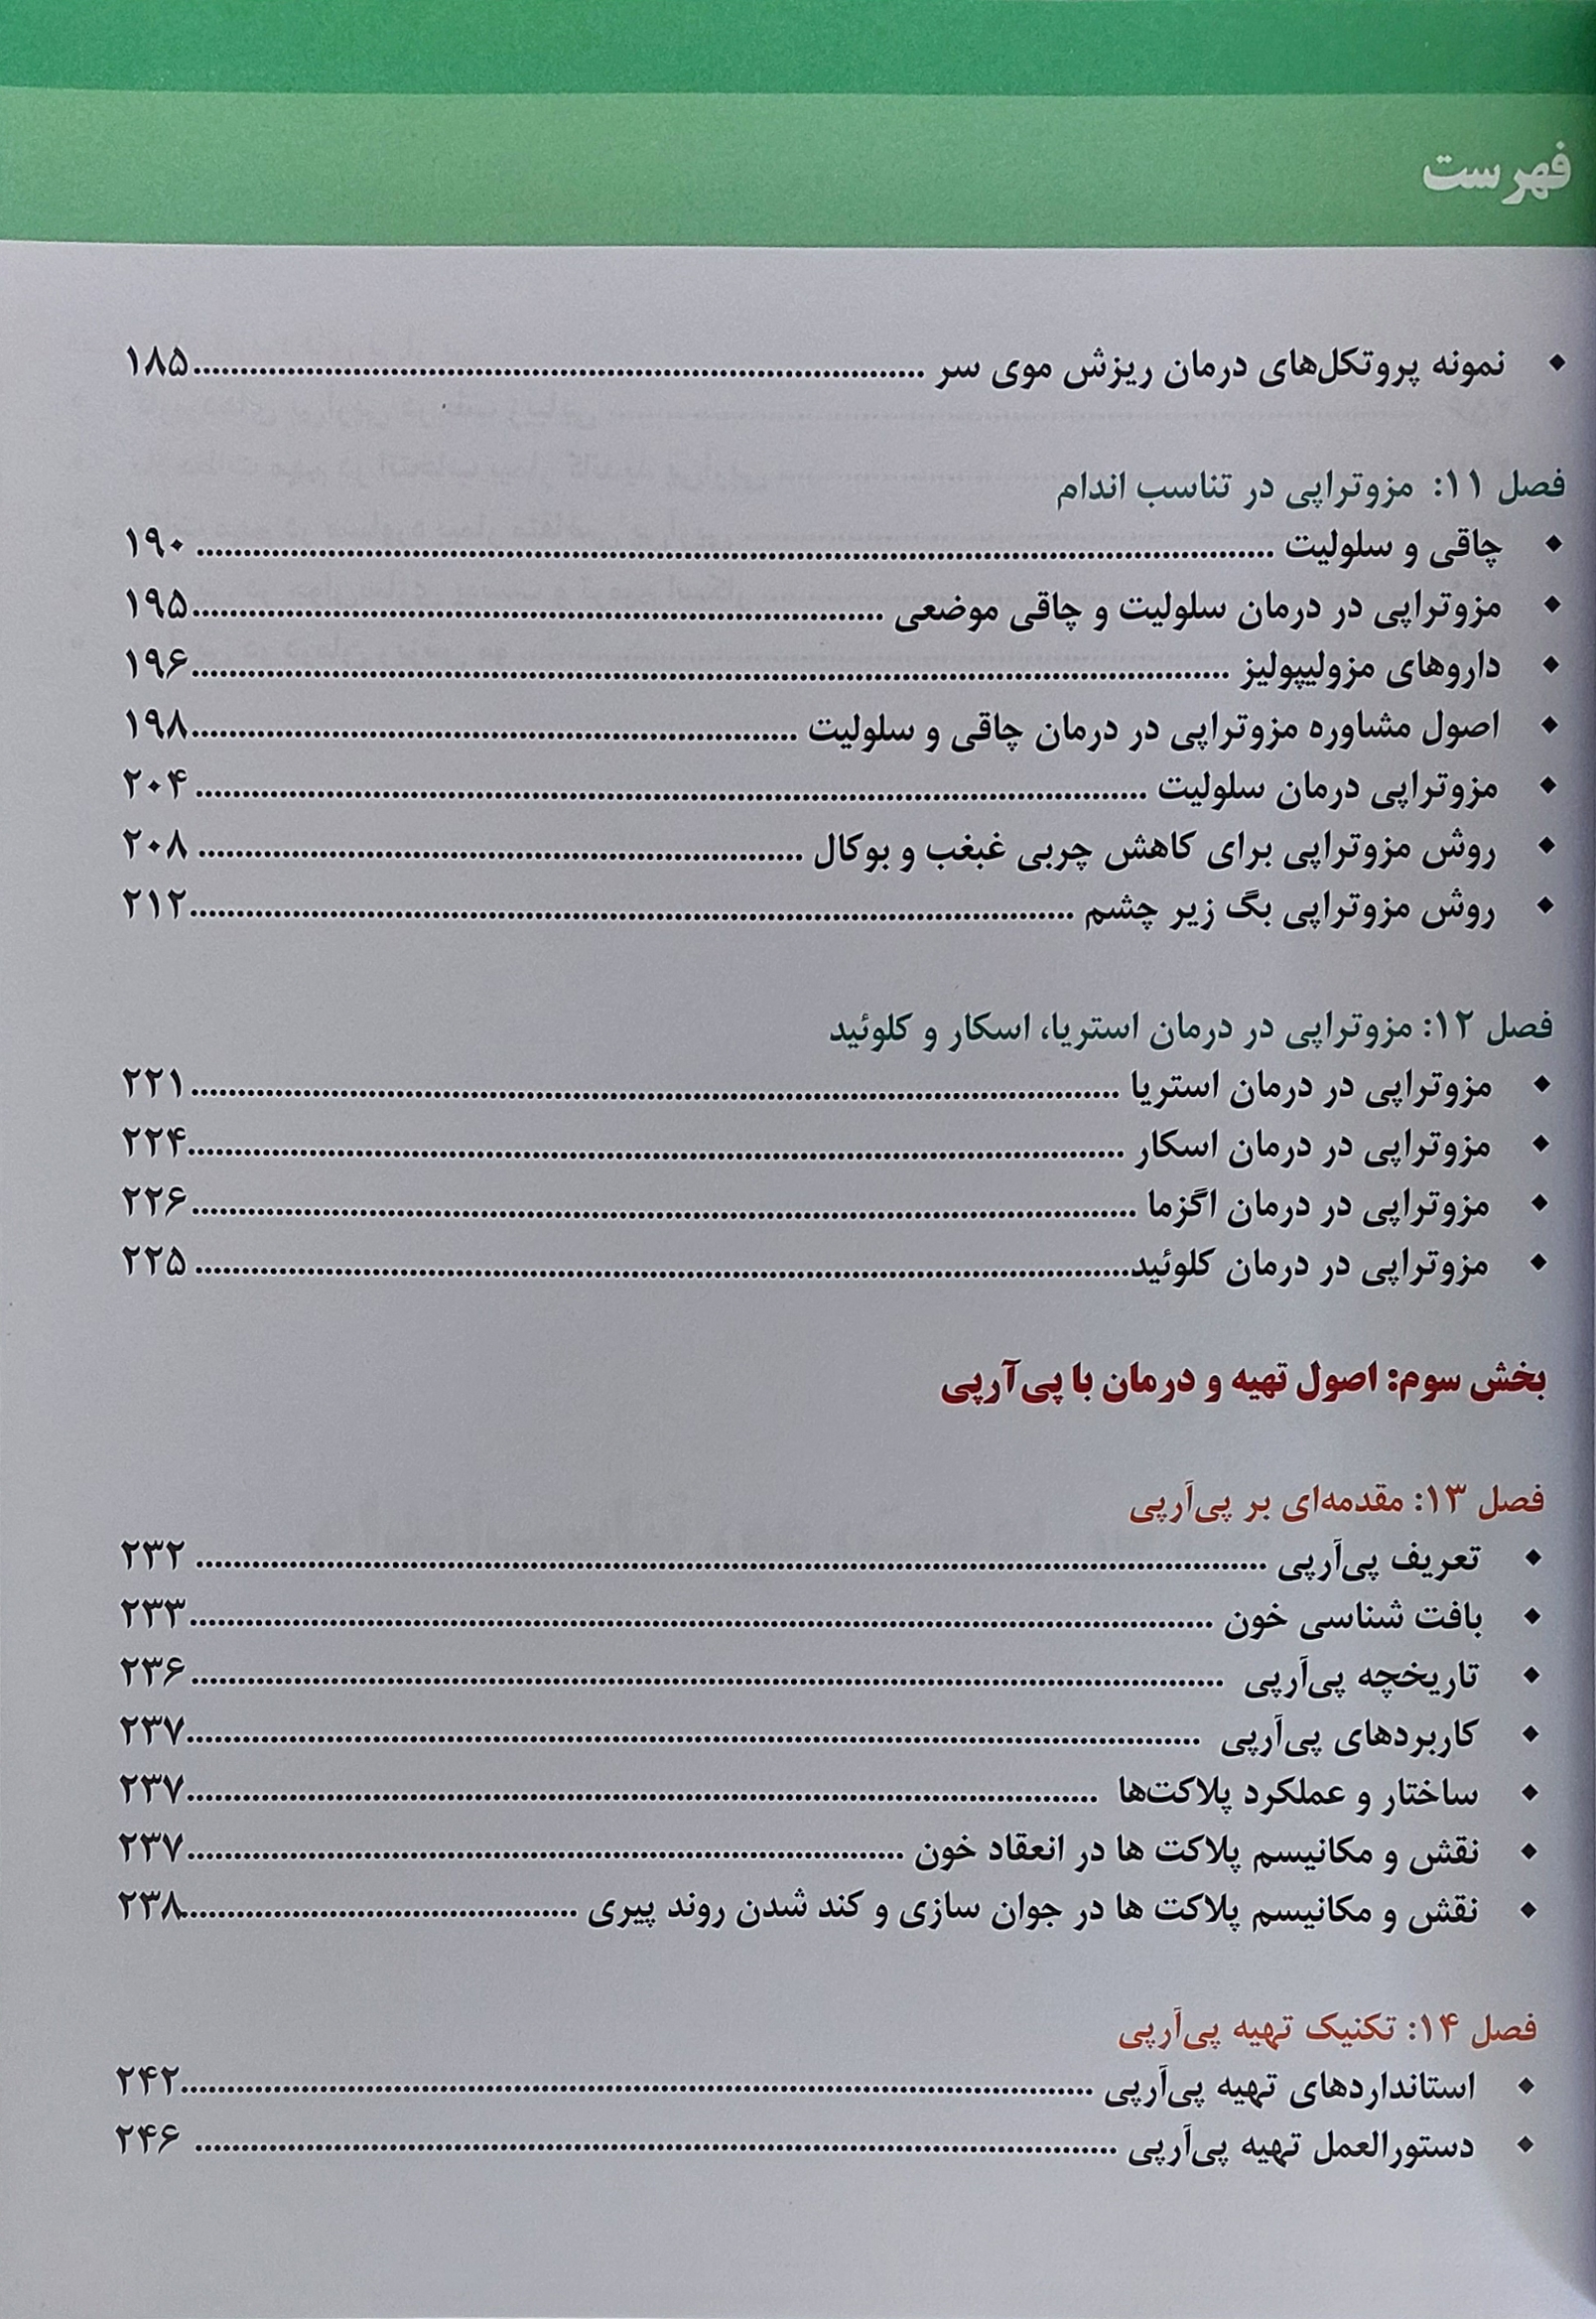 فهرست
نمونه پروتکل‌های درمان ریزش موی سر ۱۸۵
فصل ۱۱: مزوتراپی در تناسب اندام
چاقی و سلولیت ۱۹۰
مزوتراپی در درمان سلولیت و چاقی موضعی ۱۹۵
داروهای مزولیپولیز ۱۹۶
اصول مشاوره مزوتراپی در درمان چاقی و سلولیت ۱۹۸
مزوتراپی درمان سلولیت ۲۰۴
روش مزوتراپی برای کاهش چربی غبغب و بوکال ۲۰۸
روش مزوتراپی بگ زیر چشم ۲۱۲
فصل ۱۲: مزوتراپی در درمان استریا، اسکار و کلوئید
مزوتراپی در درمان استریا ۲۲۱
مزوتراپی در درمان اسکار ۲۲۴
مزوتراپی در درمان اگزما ۲۲۶
مزوتراپی در درمان کلوئید ۲۲۵
بخش سوم: اصول تهیه و درمان با پی‌آرپی
فصل ۱۳: مقدمه‌ای بر پی‌آرپی
تعریف پی‌آرپی ۲۳۲
بافت شناسی خون ۲۳۳
تاریخچه پی‌آرپی ۲۳۶
کاربردهای پی‌آرپی ۲۳۷
ساختار و عملکرد پلاکت‌ها ۲۳۷
نقش و مکانیسم پلاکت ها در انعقاد خون ۲۳۷
نقش و مکانیسم پلاکت ها در جوان سازی و کند شدن روند پیری ۲۳۸
فصل ۱۴: تکنیک تهیه پی‌آرپی
استانداردهای تهیه پی‌آرپی ۲۴۲
دستورالعمل تهیه پی‌آرپی ۲۴۶